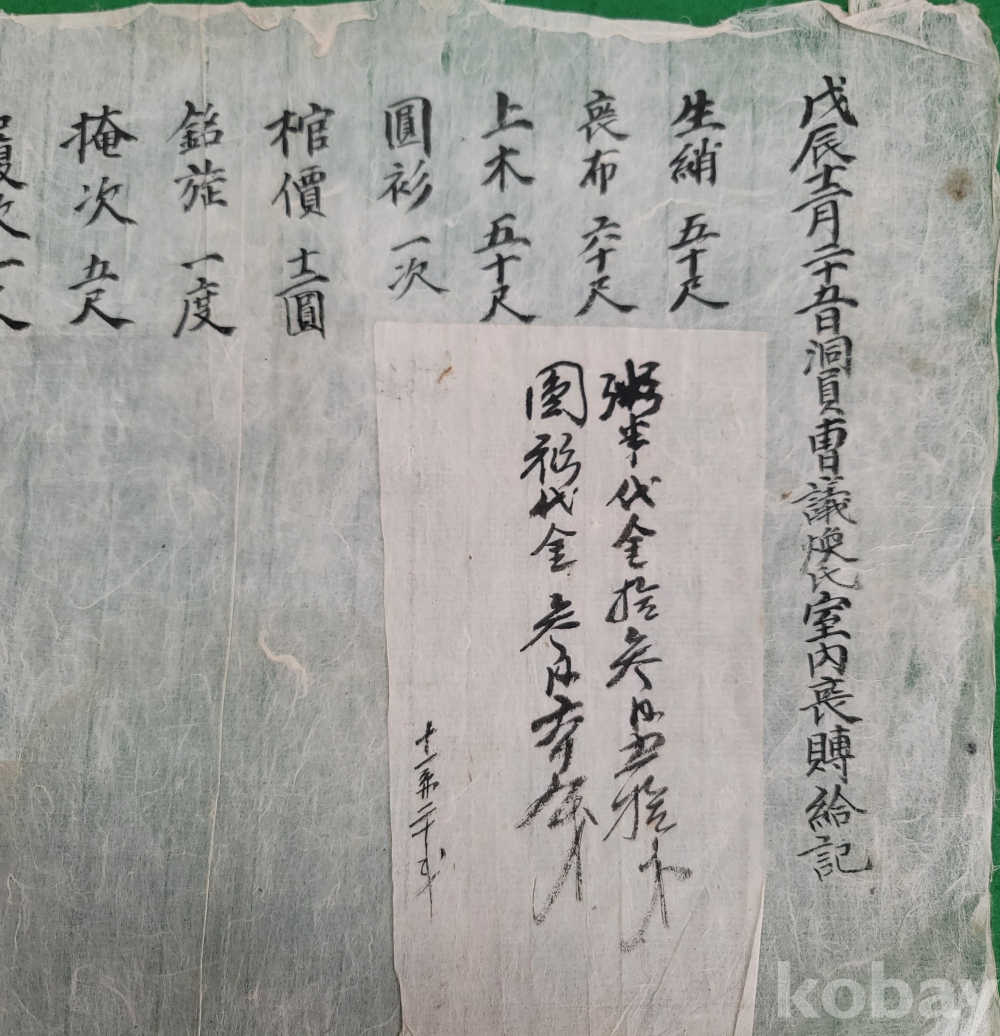 戊辰十二月二十五日洞員曺議煥氏室內喪賻給記
生綃 五十尺
喪布 六十尺
上木 五十尺
圓衫 一次
棺價 十二圓
銘旌 一度
掩次 五尺
次 一尺
粥米代金拾參円五拾
圓衫代金參円
kobay